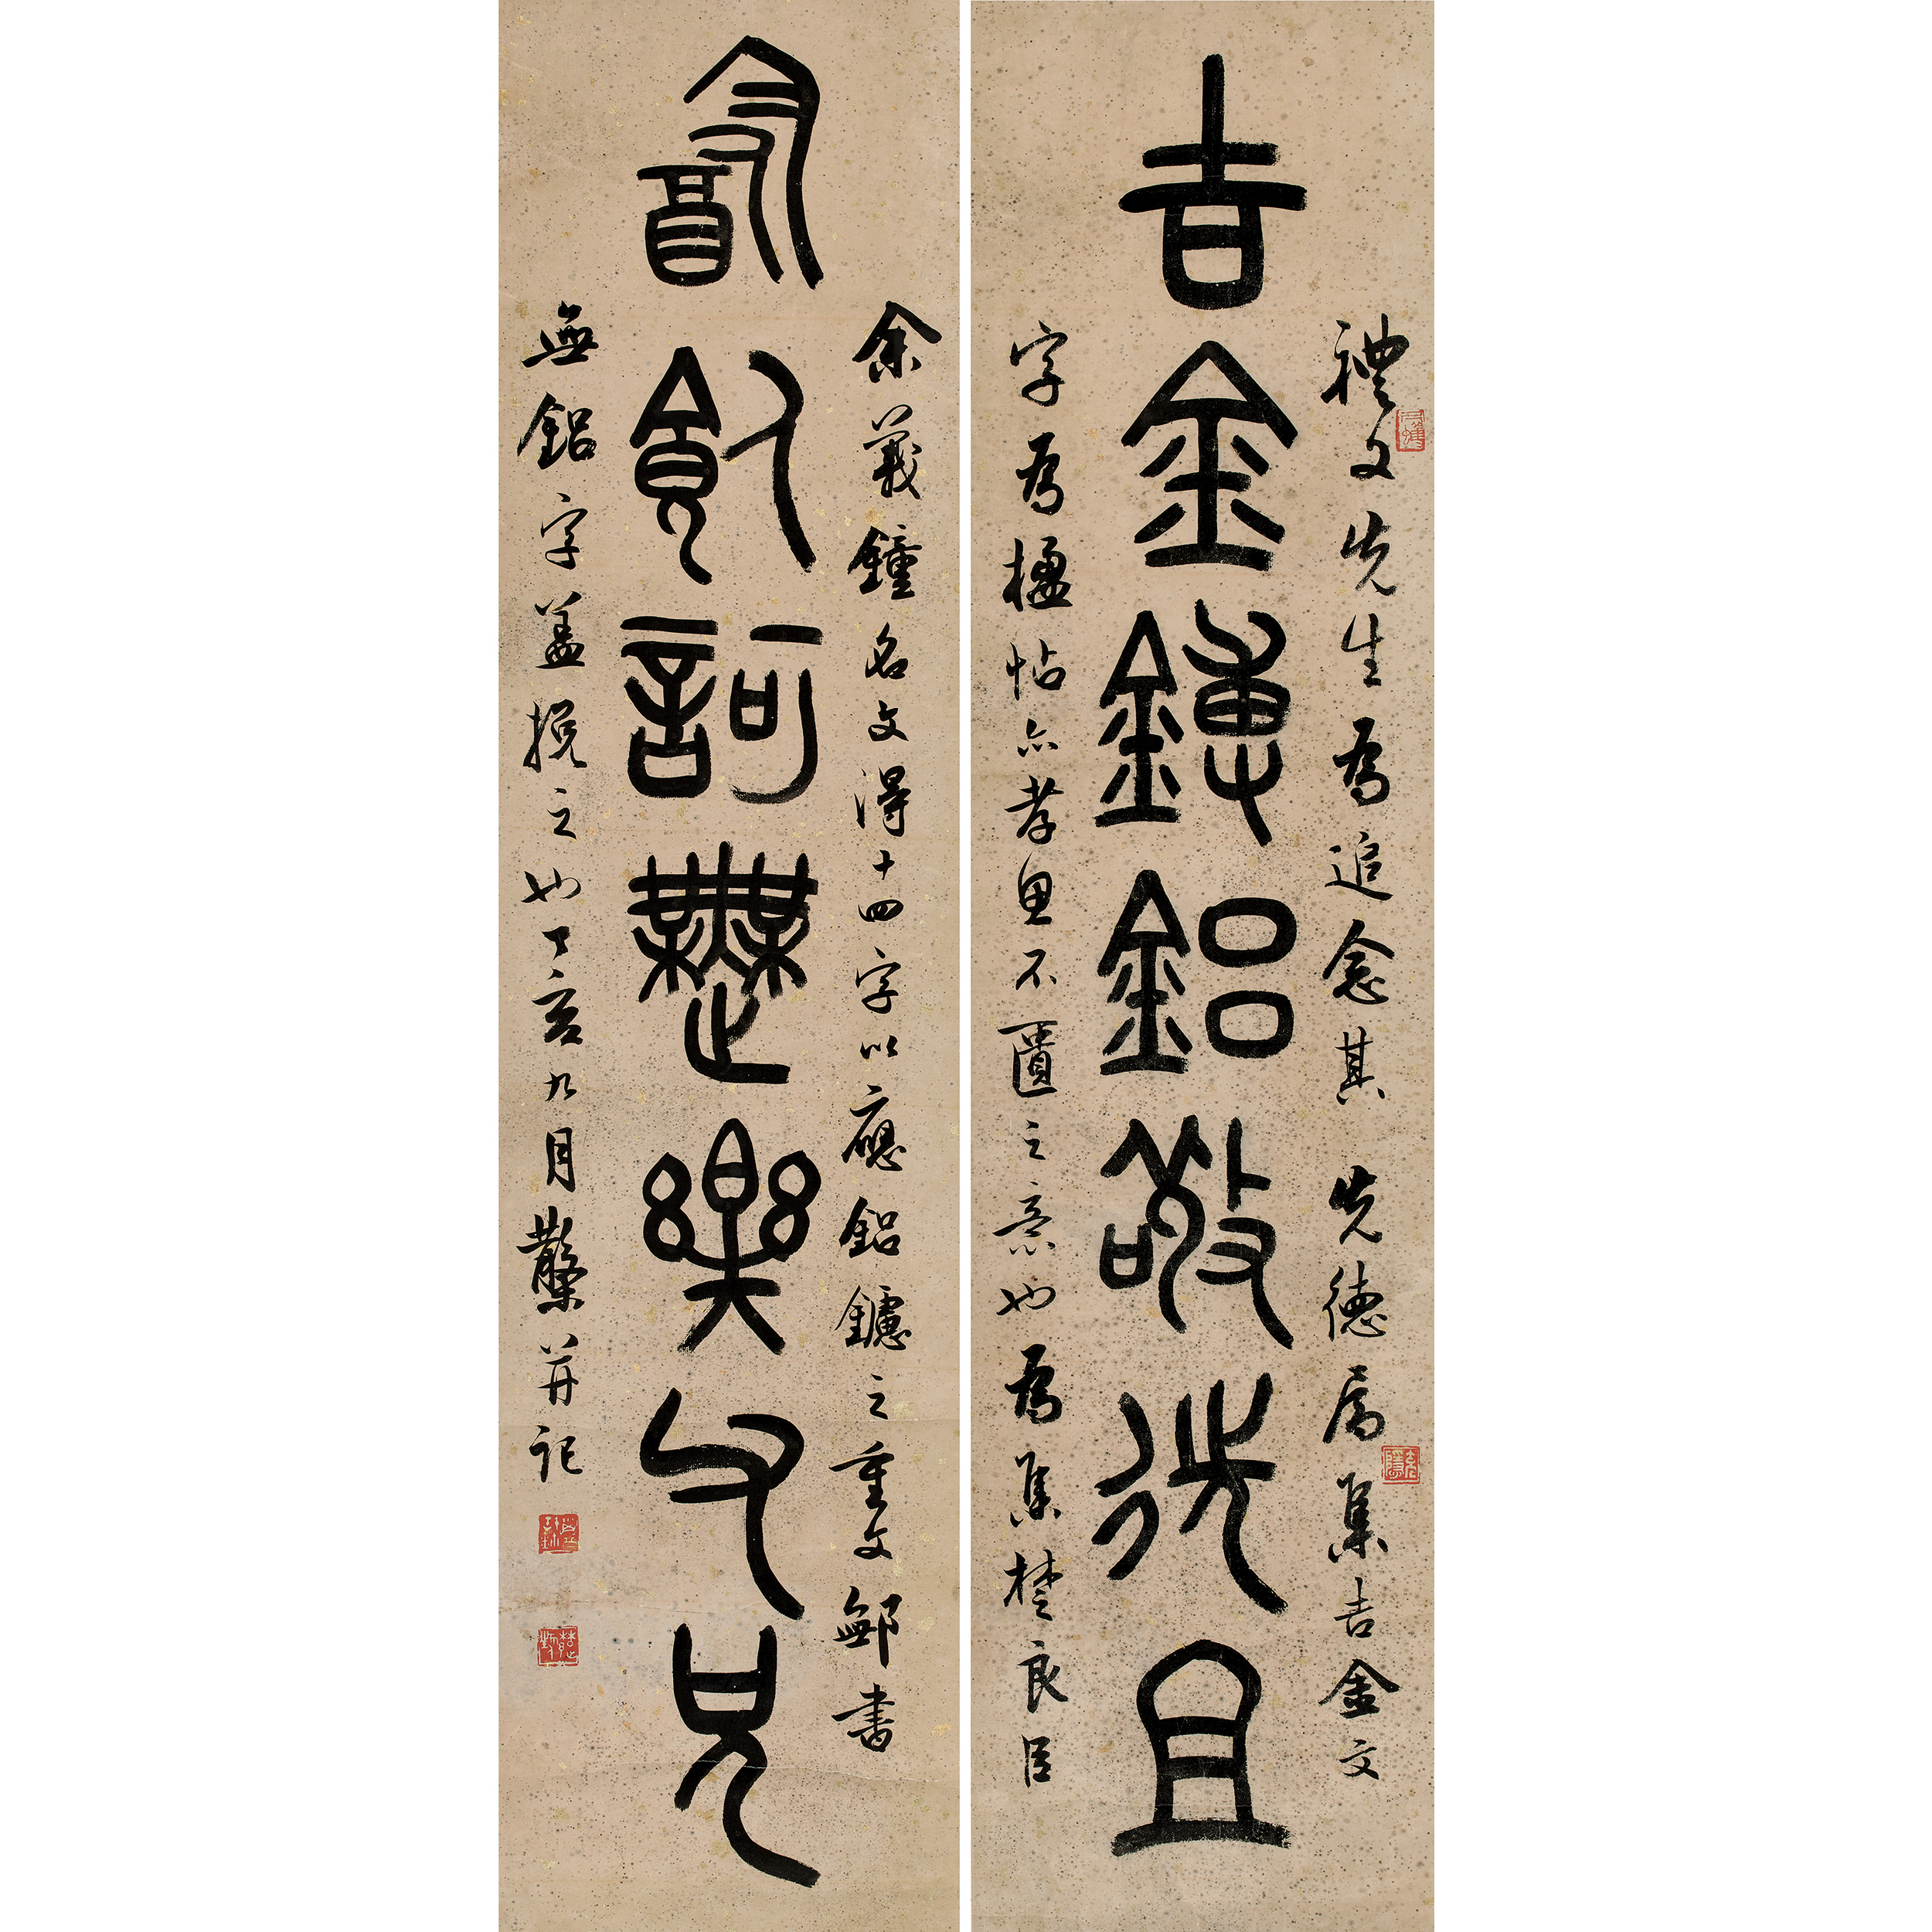 禮文先生為追念其先德属集吉金文
吉金鎛鋁敬先且
字為楹帖亦孝思不匱之意也為集楚良臣
余義鐘名文得十四字以應鋁鑢之重文鄦書
飲飤訶舞樂父兄
無鋁字蓋挩之也丁亥九月并記